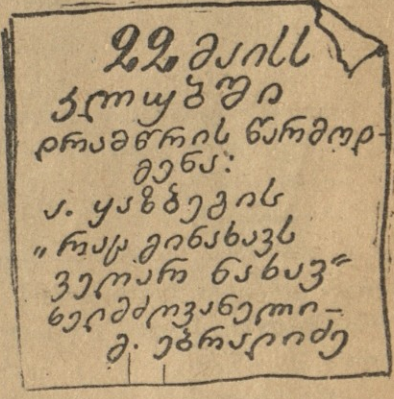 22 მაისს
კლუბში
დრამწრის წარმოდ-
გენა:
ა. ყაზბეგის
„რაც გინახავს
ვეღარ ნახავ“
ხელმძღვანელი—
მ. ებრალიძე